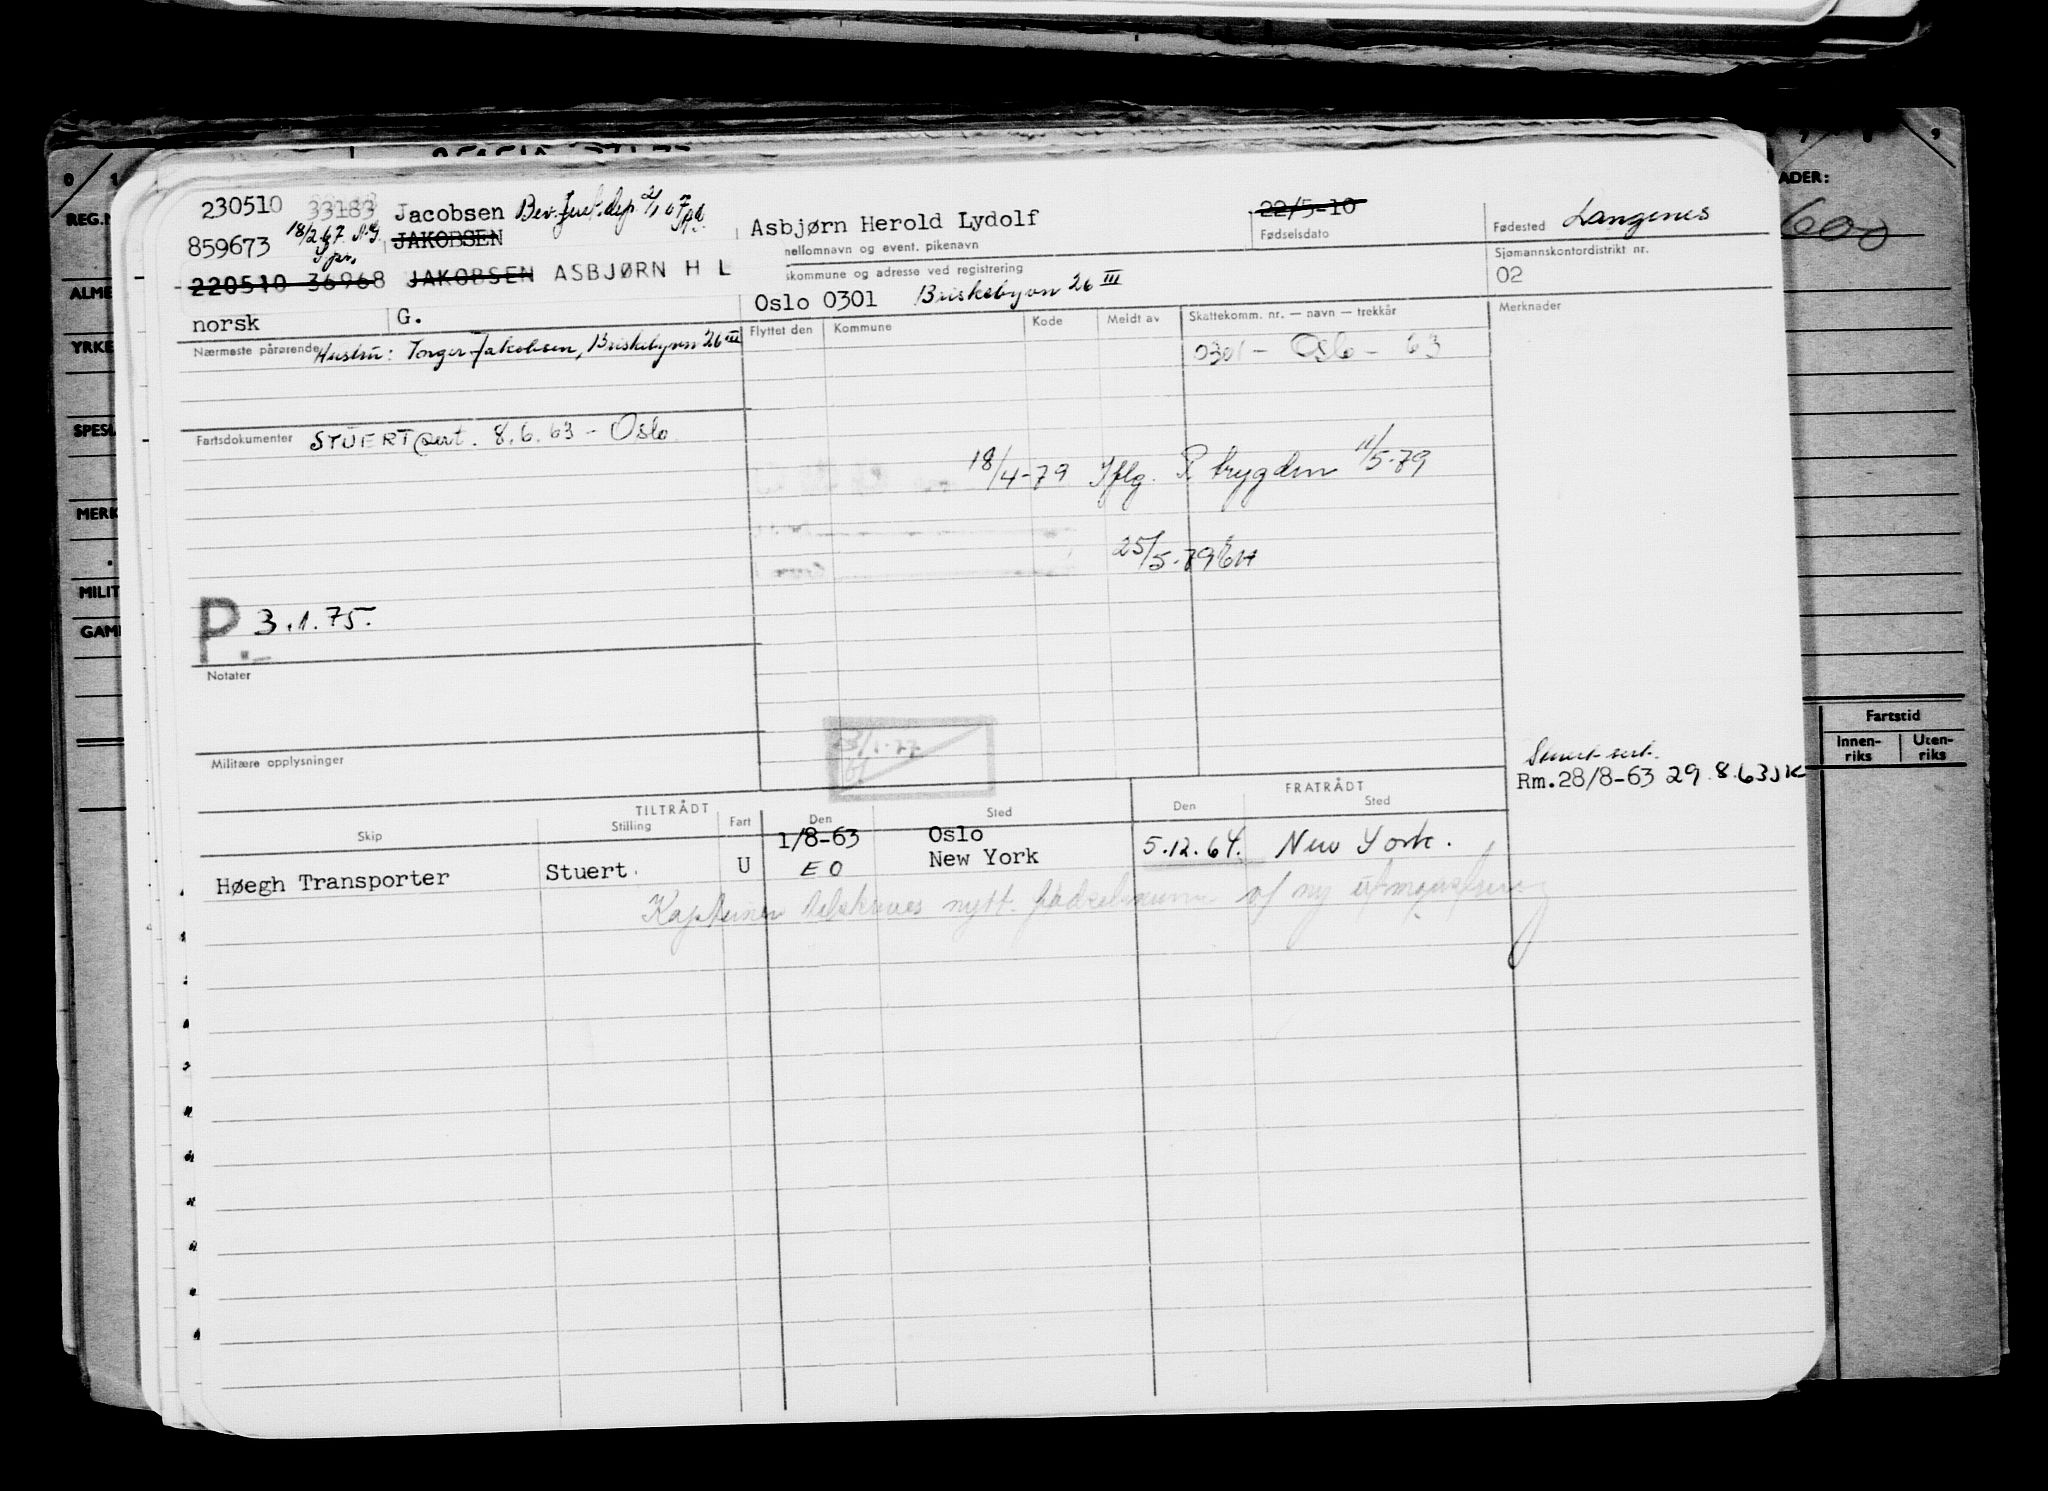 230510 33183 Jacobsen Bev. Just.dep. 2/1 67
Asbjørn Herold Lydolf
22/5-10
Fødselsdato
Fødested Langenes
859673 18/2 67 JAKOBSEN
mellomnavn og event. pikenavn
Sjømannskontordistrikt nr.
02
220510 36968 JAKOBSEN ASBJØRN H L
skommune og adresse ved registrering
Oslo 0301 Briskebyvn 26 III
norsk G.
Nærmeste pårørende Hustru: Inger Jakobsen, Briskebyvn 26 III
Flyttet den Kommune Kode Meldt av Skattekomm. nr. — navn — trekkår
Merknader
0301 - Oslo - 63
Fartsdokumenter STUERT sert. 8.6.63 - Oslo
18/4-79 Iflg. P. trygden 11/5-79
25/5-79 EH
P. 3.1.75.
Notater
Militære opplysninger
Stuert sert.
Rm. 28/8-63 29.8.63 JK
TILTRÅDT FRATRÅDT
Skip Stilling Fart Den Sted Den Sted
1/8-63 Oslo
Høegh Transporter Stuert U EO New York 5.12.64. New York.
Kapteinen
nytt
av ny
0 1
7 8 9
REG.N
ADER:
600
ALME
YRKE
SPESI
MERK
MILIT
GAM
Fartstid
Innen-riks Uten-riks